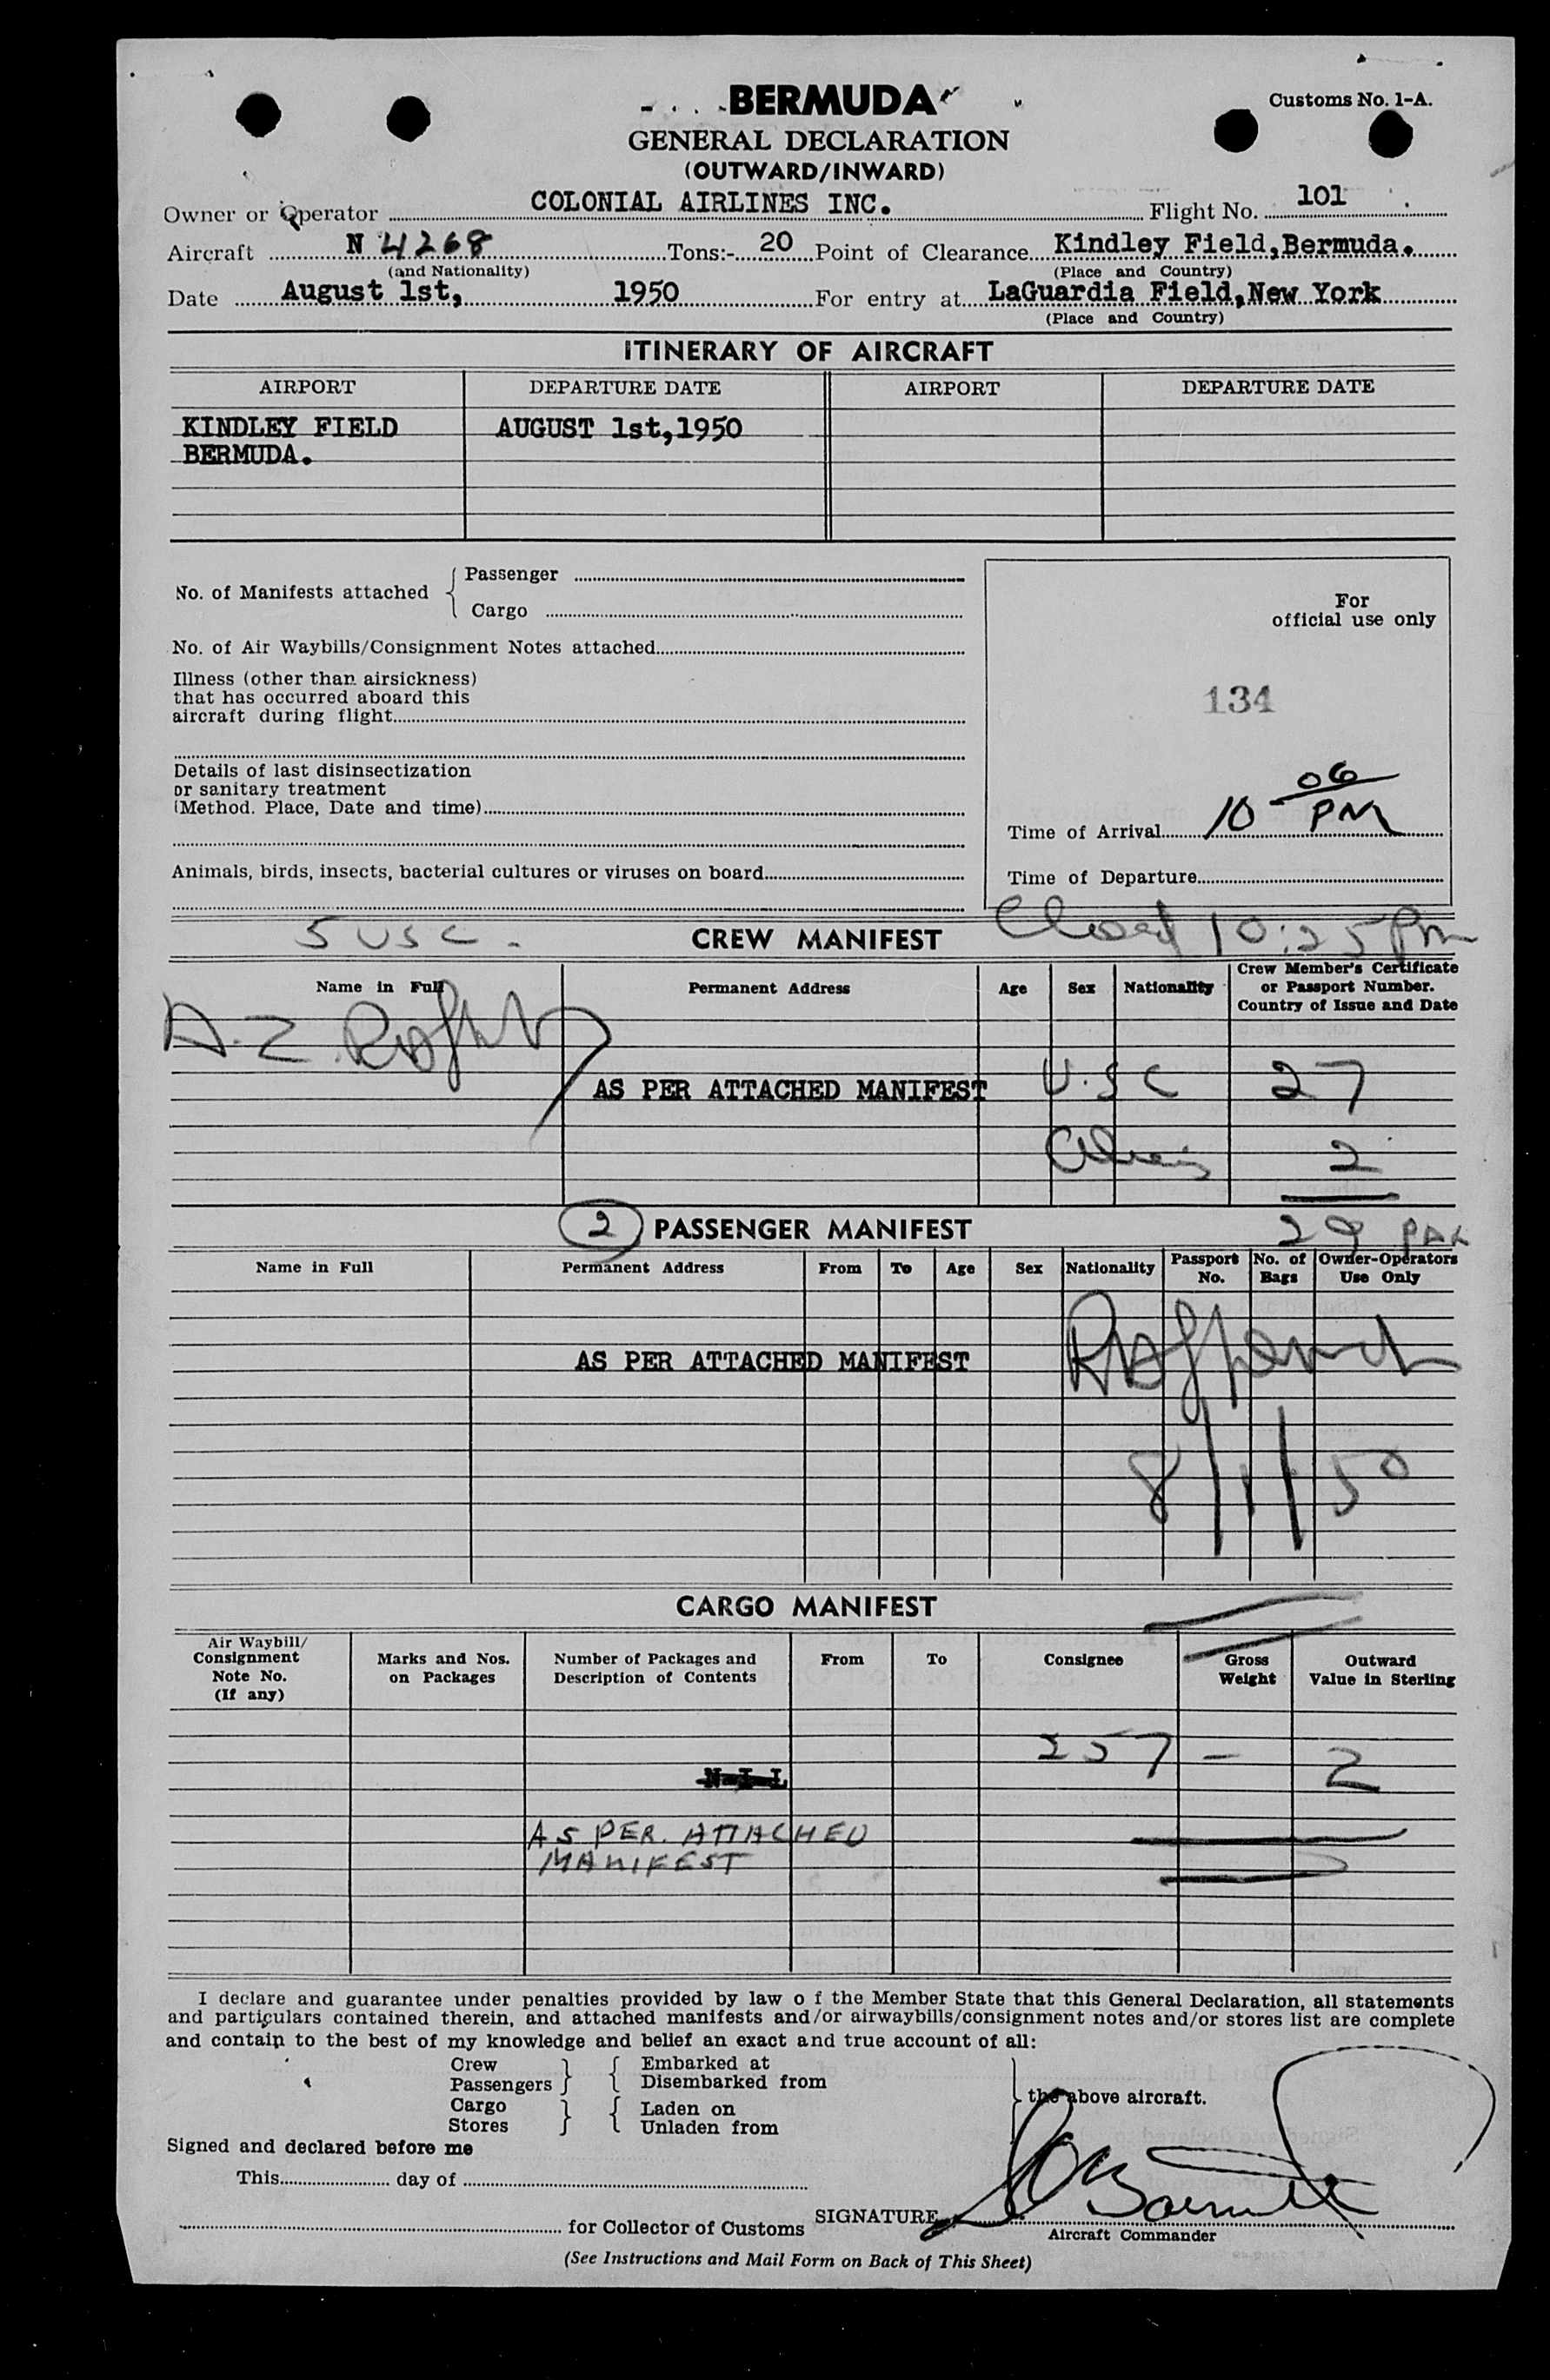 BERMUDA
Customs No. 1-A.
GENERAL DECLARATION
(OUTWARD/INWARD)
Owner or Operator COLONIAL AIRLINES INC. Flight No. 101
Aircraft N 4268 Tons:- 20 Point of Clearance Kindley Field, Bermuda.
(and Nationality) (Place and Country)
Date August 1st, 1950 For entry at LaGuardia Field, New York
(Place and Country)
ITINERARY OF AIRCRAFT
AIRPORT DEPARTURE DATE AIRPORT DEPARTURE DATE
KINDLEY FIELD AUGUST 1st, 1950
BERMUDA.
No. of Manifests attached { Passenger
Cargo
For
official use only
No. of Air Waybills/Consignment Notes attached
Illness (other than airsickness)
that has occurred aboard this
aircraft during flight
134
Details of last disinsectization
or sanitary treatment
(Method. Place, Date and time)
Time of Arrival 10 06 PM
Animals, birds, insects, bacterial cultures or viruses on board
Time of Departure
5 USC. CREW MANIFEST Closed 10:25 Pm
Name in Full Permanent Address Age Sex Nationality Crew Member's Certificate
or Passport Number.
Country of Issue and Date
AS PER ATTACHED MANIFEST U.S C 27
2
2 PASSENGER MANIFEST 29 PAX
Name in Full Permanent Address From To Age Sex Nationality Passport No. No. of Bags Owner-Operators Use Only
AS PER ATTACHED MANIFEST
8/1/50
CARGO MANIFEST
Air Waybill/
Consignment
Note No.
(If any)
Marks and Nos.
on Packages
Number of Packages and
Description of Contents
From
To
Consignee
Gross
Weight
Outward
Value in Sterling
257 - 2
N-I-L
AS PER. ATTACHED
MANIFEST
I declare and guarantee under penalties provided by law o f the Member State that this General Declaration, all statements
and particulars contained therein, and attached manifests and/or airwaybills/consignment notes and/or stores list are complete
and contain to the best of my knowledge and belief an exact and true account of all:
Crew } { Embarked at
Passengers } { Disembarked from
the above aircraft.
Cargo } { Laden on
Stores } { Unladen from
Signed and declared before me
This day of
SIGNATURE
for Collector of Customs
Aircraft Commander
(See Instructions and Mail Form on Back of This Sheet)